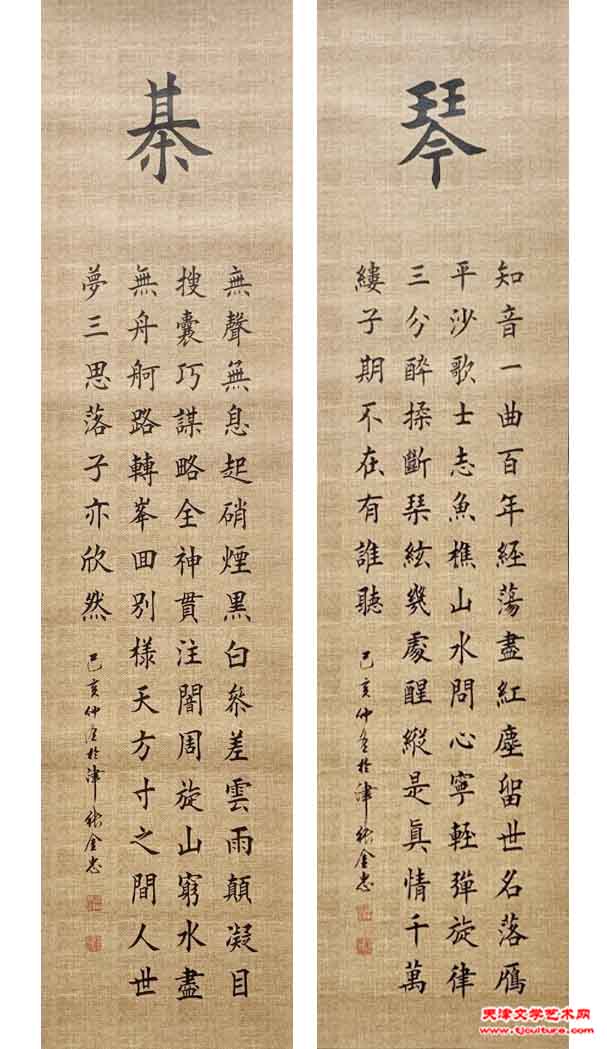 琴
知音一曲百年經蕩盡紅塵留世名落鴈
平沙歌士志魚樵山水問心寧輕彈旋律
三分醉揉斷琹絃幾處醒縱是真情千萬
縷子期不在有誰聽
己亥仲夏於津張金忠
棊
無聲無息起硝煙黑白參差雲雨顛凝目
搜囊巧謀略全神貫注闇周旋山窮水盡
無舟舸路轉峯回別樣天方寸之間人世
夢三思落子亦欣然
己亥仲夏於津張金忠
天津文学艺术网
www.tjculture.com